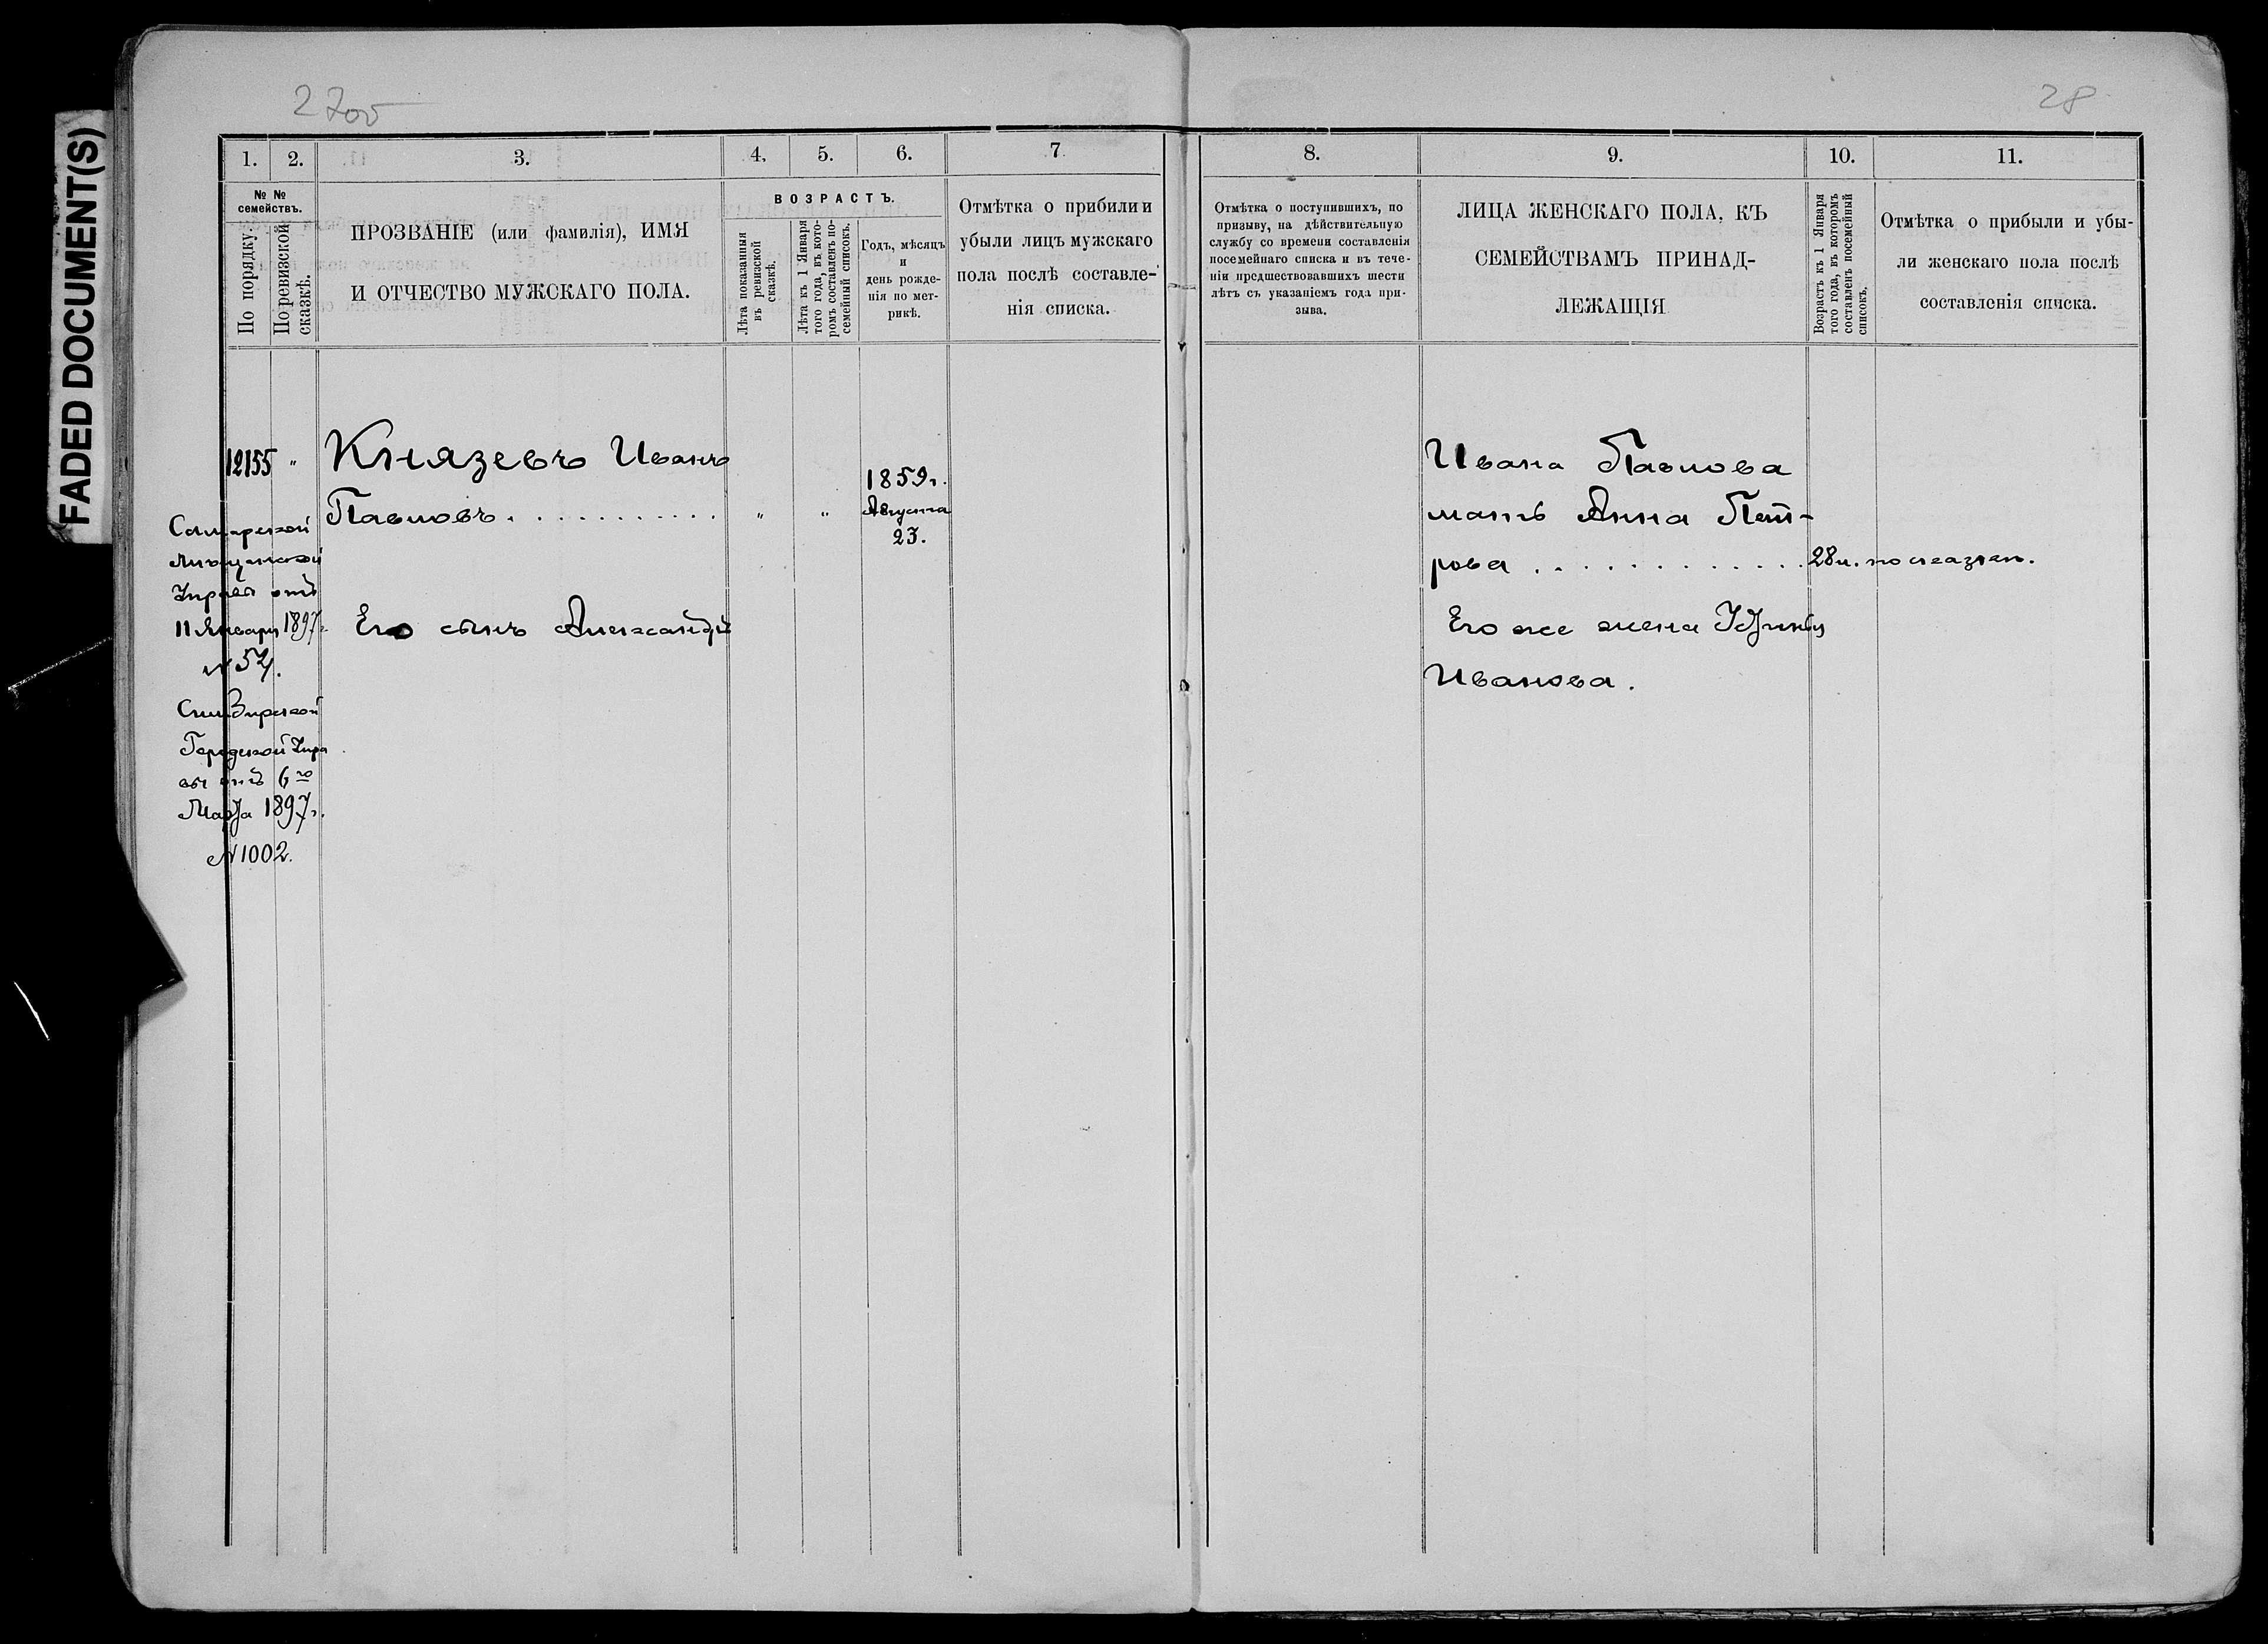 FADED DOCUMENT(S)
28
1. 2. 3. 4. 5. 6. 7
№ №
семействъ.
По порядку.
По ревизской
сказкѣ.
ПРОЗВАНІЕ (или фамилія), ИМЯ
И ОТЧЕСТВО МУЖСКАГО ПОЛА.
ВОЗРАСТЪ.
Лѣта показанныя
въ ревизской
сказкѣ.
Лѣта къ 1 Января
того года, въ кото-
ромъ составленъ по-
семейный списокъ.
Годъ, мѣсяцъ
и
день рожде-
нія по мет-
рикѣ.
Отмѣтка о прибыли и
убыли лицъ мужскаго
пола послѣ составле-
нія списка.
12155 "
Князевъ Иванъ
Павловъ . . . . . . . . . . . " "
1859 г.
Августа
23.
Его сынъ Александръ
Самарской
Мѣщанской
Управы отъ
11 Января 1897 г.
№ 52.
Симбирской
Городской Упра
вы отъ 6го
Марта 1897 г.
№ 1002.
8. 9. 10. 11.
Отмѣтка о поступившихъ, по
призыву, на дѣйствительную
службу со времени составленія
посемейнаго списка и въ тече-
ніи предшествовавшихъ шести
лѣтъ съ указаніемъ года при-
зыва.
ЛИЦА ЖЕНСКАГО ПОЛА, КЪ
СЕМЕЙСТВАМЪ ПРИНАД-
ЛЕЖАЩІЯ
Возрастъ къ 1 Января
того года, въ которомъ
составленъ посемейный
списокъ.
Отмѣтка о прибыли и убы-
ли женскаго пола послѣ
составленія списка.
Ивана Павлова
мать Анна Пет-
рова . . . . . . . . . . . . 28 л. по сказкѣ.
Его же жена
Иванова.